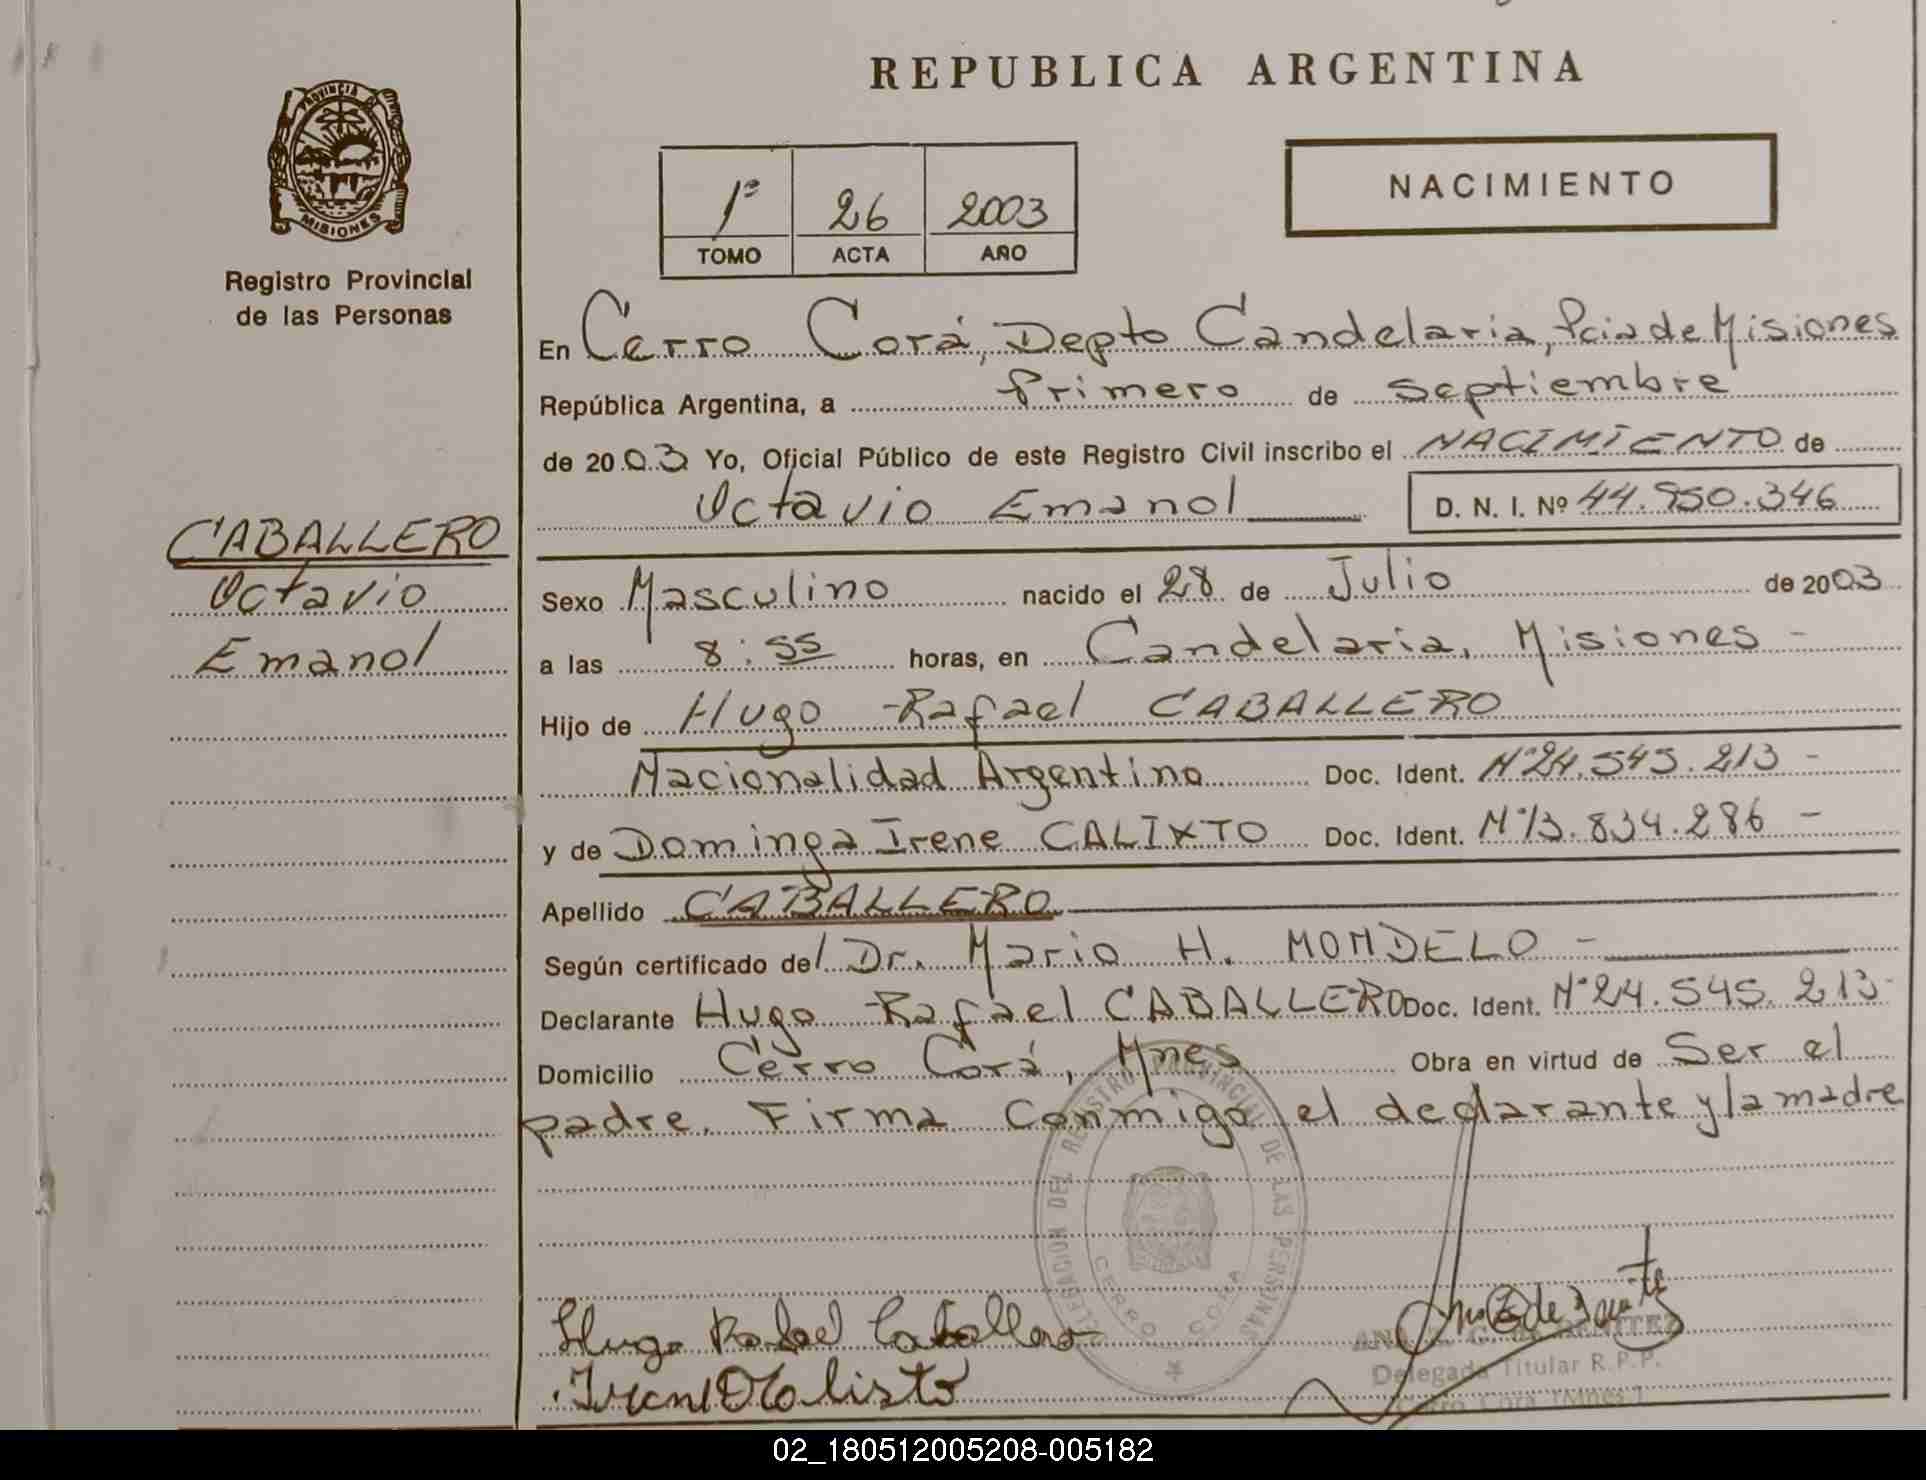 REPUBLICA ARGENTINA
PROVINCIA
MISIONES
Registro Provincial
de las Personas
1º 26 2003
TOMO ACTA AÑO
NACIMIENTO
En Cerro Corá, Depto Candelaria, Pcia de Misiones
República Argentina, a primero de septiembre
de 2003 Yo, Oficial Público de este Registro Civil inscribo el NACIMIENTO de
Octavio Emanol D. N. I. Nº 44.950.346
CABALLERO
Octavio
Emanol
Sexo Masculino nacido el 28 de Julio de 2003
a las 8:55 horas, en Candelaria, Misiones -
Hijo de Hugo Rafael CABALLERO
Nacionalidad Argentino Doc. Ident. Nº 24.545.213 -
y de Dominga Irene CALIXTO Doc. Ident. Nº 13.834.286 -
Apellido CABALLERO
Según certificado del Dr. Mario H. MONDELO -
Declarante Hugo Rafael CABALLERO Doc. Ident. Nº 24.545.213-
Domicilio Cerro Corá, Mnes Obra en virtud de Ser el
padre. Firma conmigo el declarante y la madre
DELEGACION DEL REGISTRO PROVINCIAL DE LAS PERSONAS
CERRO CORA
Hugo Rafael Caballero
Delegada Titular R.P.P.
Cerro Cora (Mnes.)
02_180512005208-005182